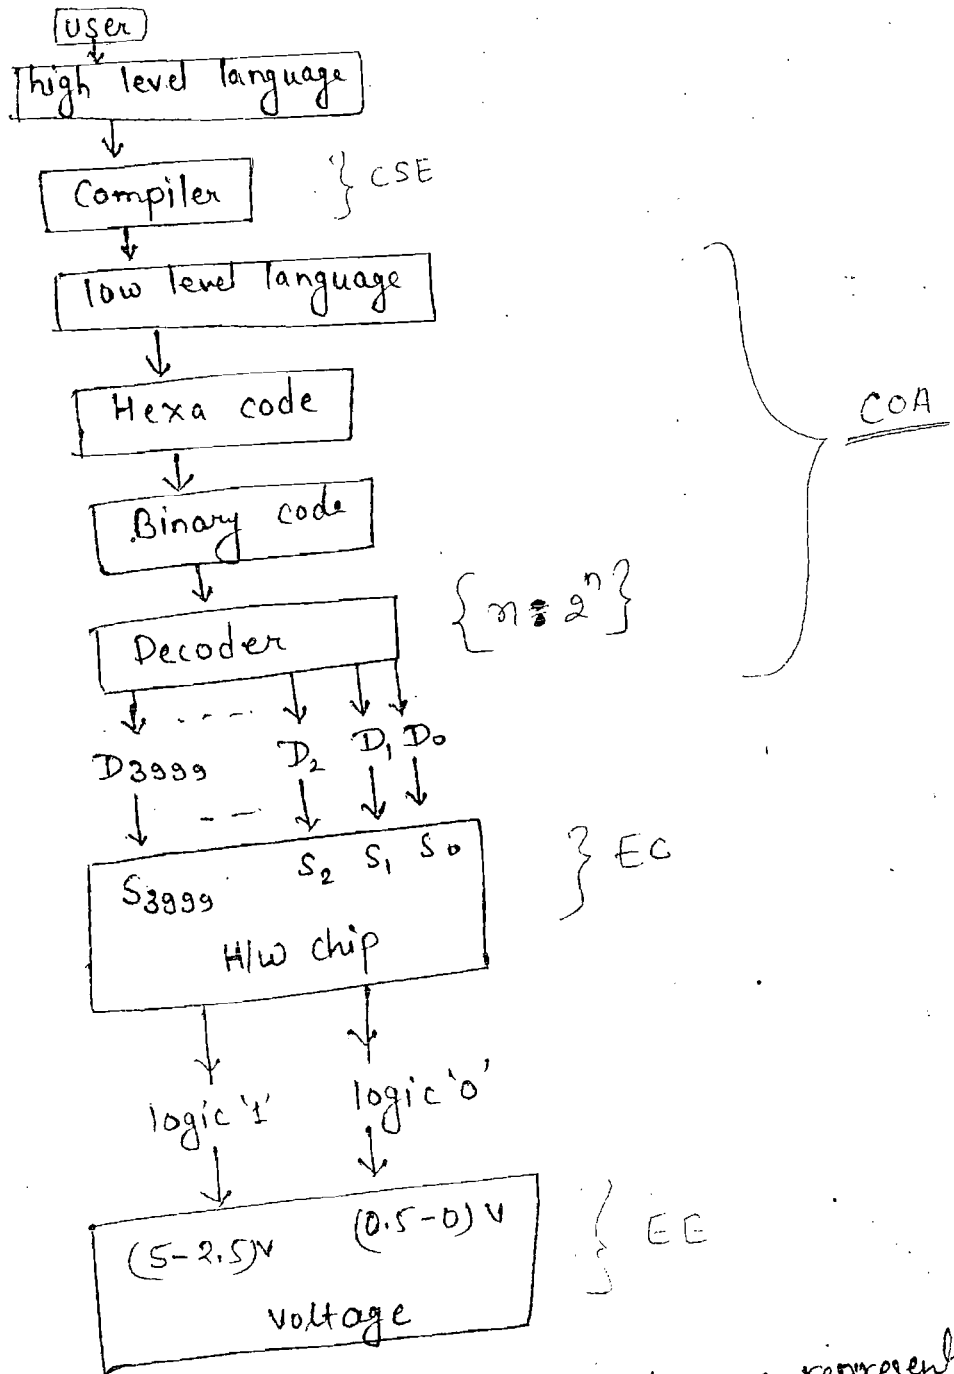 user
high level language
Compiler } CSE
low level language
Hexa code
COA
Binary code
Decoder { n : 2ⁿ }
D3999 .... D₂ D₁ D₀
S3999 S₂ S₁ S₀ } EC
H/W chip
logic '1' logic '0'
(5-2.5)V (0.5-0)V } EE
voltage